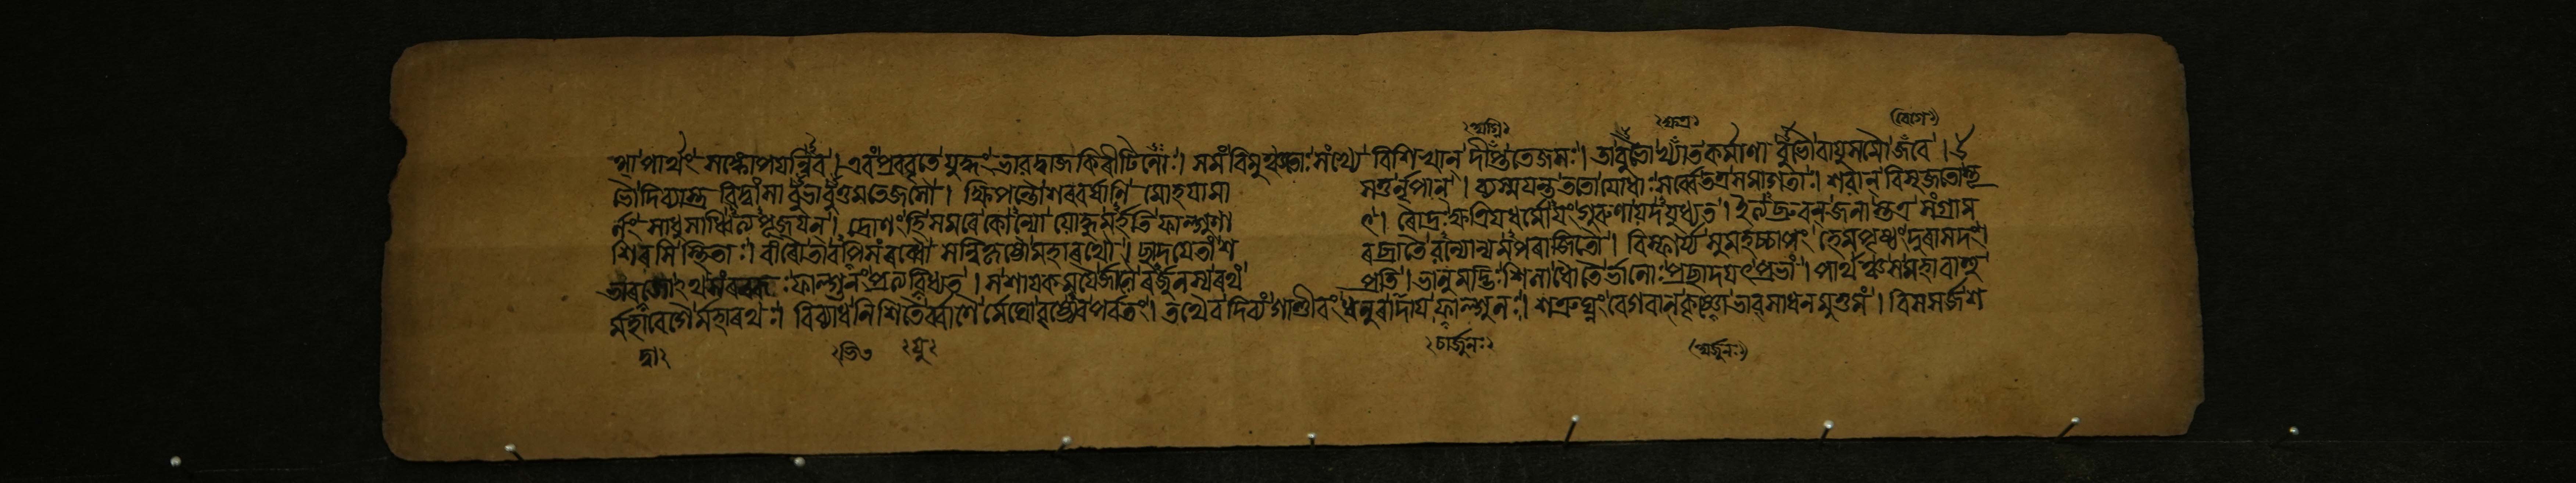 অগ্নি ক্ষত্র বেগে
থা পার্থং সহ্যোপযন্নিব। এবং প্রববৃতে যুদ্ধং ভাৰদ্বাজকিৰীটিনোঃ। সমং বিমুঞ্চতোঃ সংখ্যে বিশিখান্ দীপ্ততেজসঃ। তাবুভৌ খ্যাতকর্মাণা বুভৌ বায়ুসমৌ জবে। উ
ভৌ দিব্যাস্ত্রবিদ্বাংসা বুভাবুত্তমতেজসৌ। ক্ষিপন্তৌ শৰবর্ষাণি মোহয়ামা সতুর্নৃপান্। ব্যস্ময়ন্ত ততো যোধাঃ সর্ব্বে তত্র সমাগতাঃ। শৰান্ বিসৃজতোস্তূ
র্ণং সাধু সাধ্বিত্যপূজয়ন্। দ্রোণং হি সমৰে কোন্যো যোদ্ধুমর্হতি ফাল্গুণা ৎ। ৰৌদ্রঃ ক্ষত্রিয়ধর্মোয়ং গুৰুণা যদযুধ্যত। ইত্যব্রুবন্ জনাস্তত্র সংগ্রাম
শিৰসি স্থিতাঃ। বীৰৌ তাবপি সংৰব্ধৌ সন্নিকৃষ্টৌ মহাৰথৌ। ছাদয়েতাং শ ৰব্রাতৈৰন্যোন্যমপৰাজিতৌ। বিস্ফার্য্য সুমহচ্চাপং হেমপৃষ্ঠং দুৰাসদং।
ভাৰদ্বাজোঽথ সংৰব্ধঃ ফাল্গুনং প্রত্যবিধ্যত। স শায়কময়ৈর্জালৈ ৰর্জুনস্য ৰথং প্রতি। ভানুমদ্ভিঃ শিলাধৌতৈর্ভানোঃ প্রচ্ছাদয়ৎ প্রভাং। পার্থঞ্চ স মহাবাহু
র্মহাবেগৈর্মহাৰথঃ। বিব্যাধ নিশিতৈর্ব্বাণৈর্মেঘো বৃষ্ট্যেব পর্বতং। তথৈব দিব্যং গাণ্ডীবং ধনুৰাদায় ফাল্গুনঃ। শত্রুঘ্নং বেগবান্ কৃষ্ণো ভাৰসাধনমুত্তমং। বিসসর্জ শ
দ্বা অর্জুনঃ অর্জুনঃ